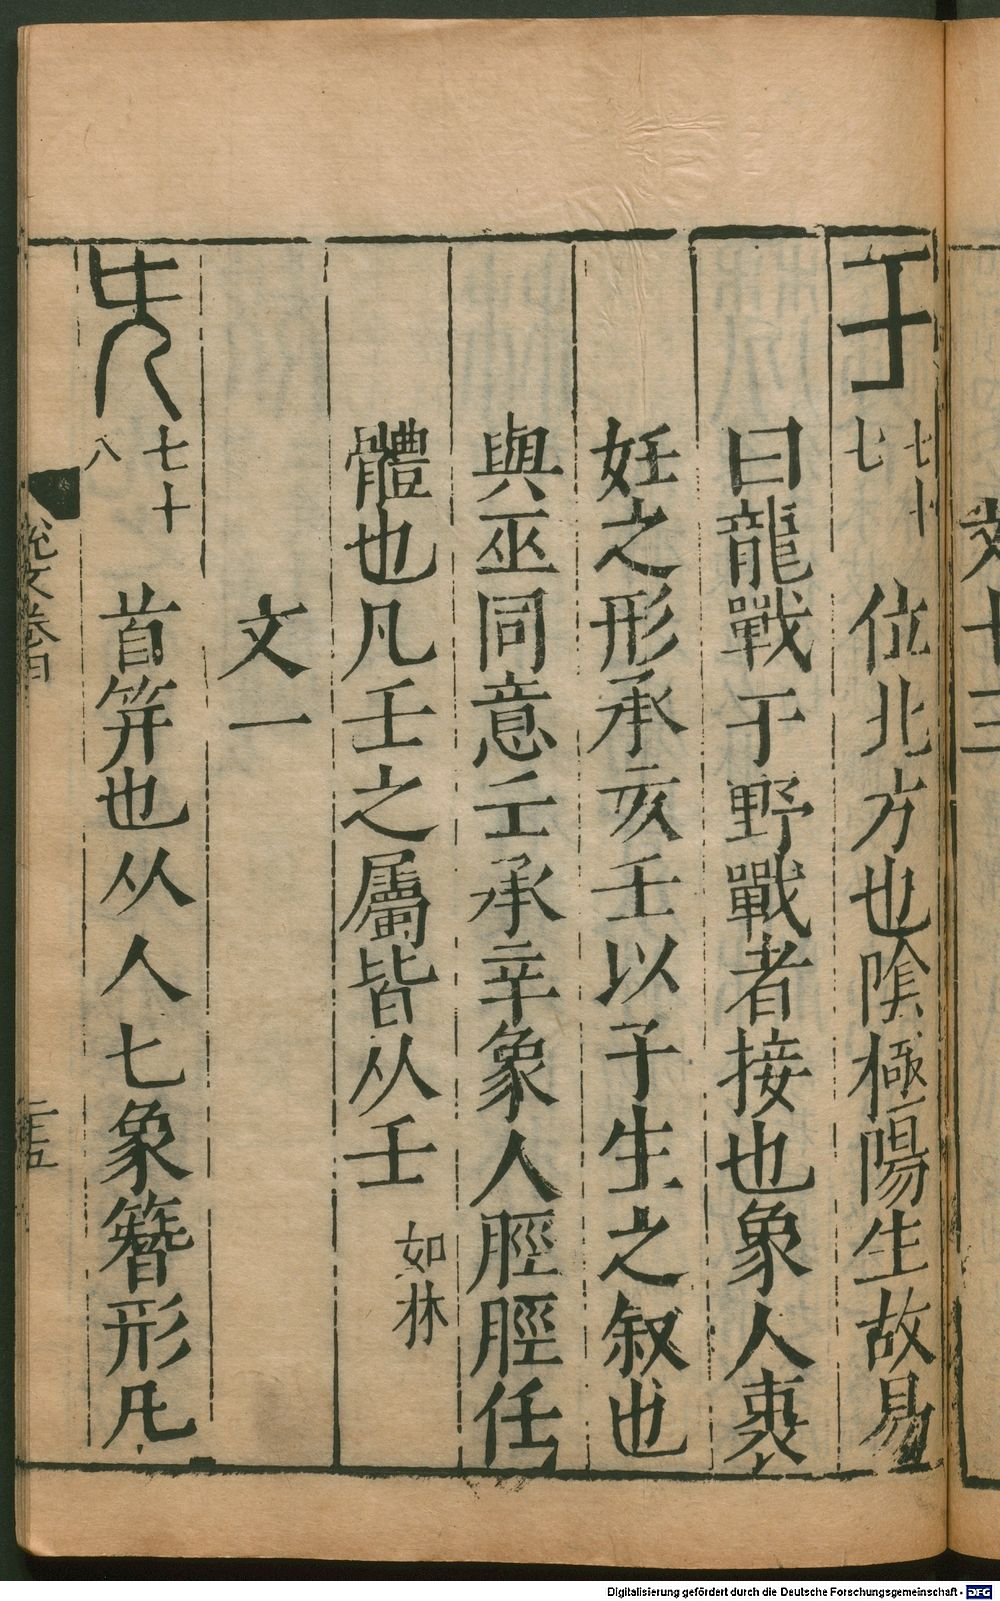 壬 七十七 位北方也陰極陽生故易
曰龍戰于野戰者接也象人褱
妊之形承亥壬以子生之叙也
與巫同意壬承辛象人脛脛任
體也凡壬之屬皆从壬 如林
文一
兂 七十八 首笄也从人匕象簪形凡
說文卷首
二十五
Digitalisierung gefördert durch die Deutsche Forschungsgemeinschaft - DFG